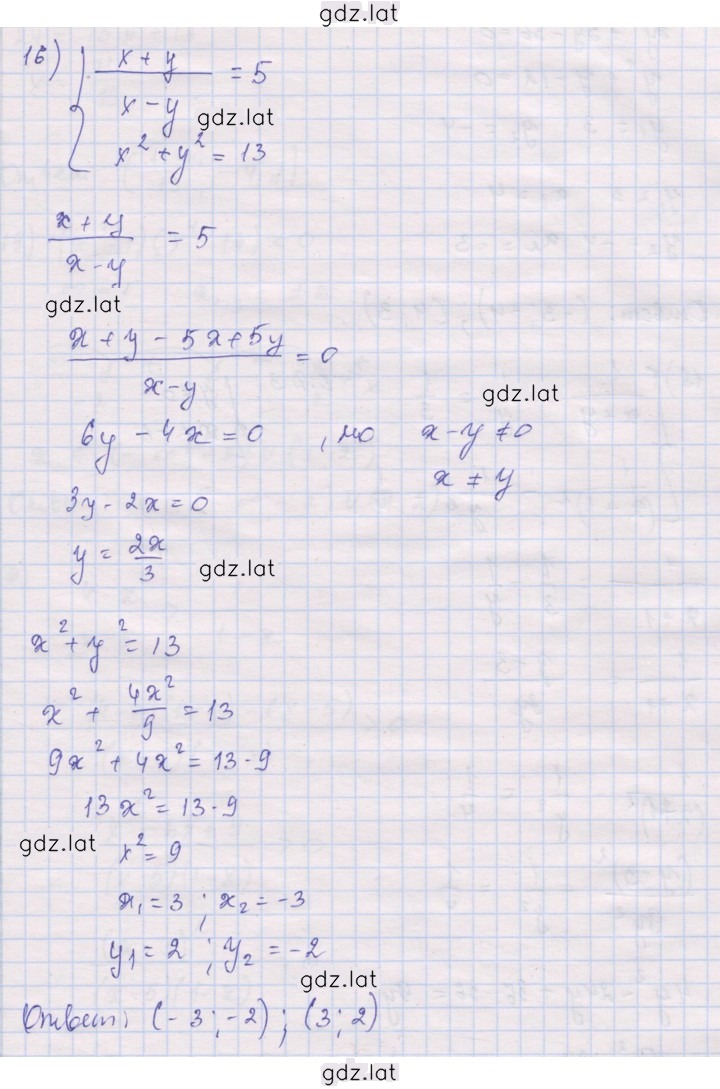 gdz.lat
16) { x + y / x - y = 5
gdz.lat
x² + y² = 13
x + y / x - y = 5
gdz.lat
x + y - 5x + 5y / x - y = 0
gdz.lat
6y - 4x = 0 , но x - y ≠ 0
x ≠ y
3y - 2x = 0
y = 2x / 3
gdz.lat
x² + y² = 13
x² + 4x² / 9 = 13
9x² + 4x² = 13 · 9
13x² = 13 · 9
gdz.lat
x² = 9
x₁ = 3 ; x₂ = -3
y₁ = 2 ; y₂ = -2
gdz.lat
Ответ: (-3; -2); (3; 2)
gdz.lat